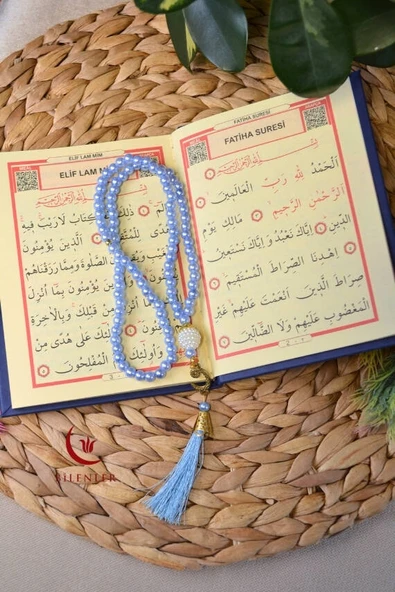 FATİHA SURESİ
FATİHA SURESİ
بِسْمِ اللّٰهِ الرَّحْمٰنِ الرَّحِيمِ
اَلْحَمْدُ لِلّٰهِ رَبِّ الْعَالَمِينَ
اَلرَّحْمٰنِ الرَّحِيمِ مَالِكِ يَوْمِ
الدِّينِ اِيَّاكَ نَعْبُدُ وَاِيَّاكَ نَسْتَعِينُ
اِهْدِنَا الصِّرَاطَ الْمُسْتَقِيمَ
صِرَاطَ الَّذِينَ اَنْعَمْتَ عَلَيْهِمْ غَيْرِ
الْمَغْضُوبِ عَلَيْهِمْ وَلَا الضَّالِّينَ
ELİF LAM MİM
ELİF LAM M
بِسْمِ اللّٰهِ الرَّحْمٰنِ الرَّحِيمِ
الٓمٓ ذٰلِكَ الْكِتَابُ لَا رَيْبَ فِيهِ
هُدًى لِلْمُتَّقِينَ اَلَّذِينَ يُؤْمِنُونَ
الصَّلٰوةَ وَمِمَّا رَزَقْنَاهُمْ
يُؤْمِنُونَ بِمَا اُنْزِلَ
اُنْزِلَ مِنْ قَبْلِكَ وَبِالْاٰخِرَةِ
اُولٰٓئِكَ عَلٰى هُدًى مِنْ
وَاُولٰٓئِكَ هُمُ الْمُفْلِحُونَ
BİLENLER